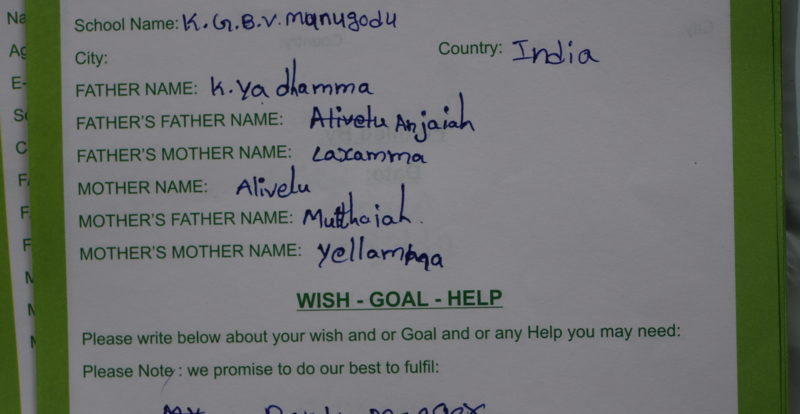 Na
School Name: K.G.B.V. Manugodu
Ag
City:
Country: India
E-
FATHER NAME: K.Yadhamma
FATHER'S FATHER NAME: Alivelu Anjaiah
FATHER'S MOTHER NAME: Laxamma
MOTHER NAME: Alivelu
MOTHER'S FATHER NAME: Mutthaiah.
MOTHER'S MOTHER NAME: Yellamma
WISH - GOAL - HELP
Please write below about your wish and or Goal and or any Help you may need:
Please Note : we promise to do our best to fulfil: